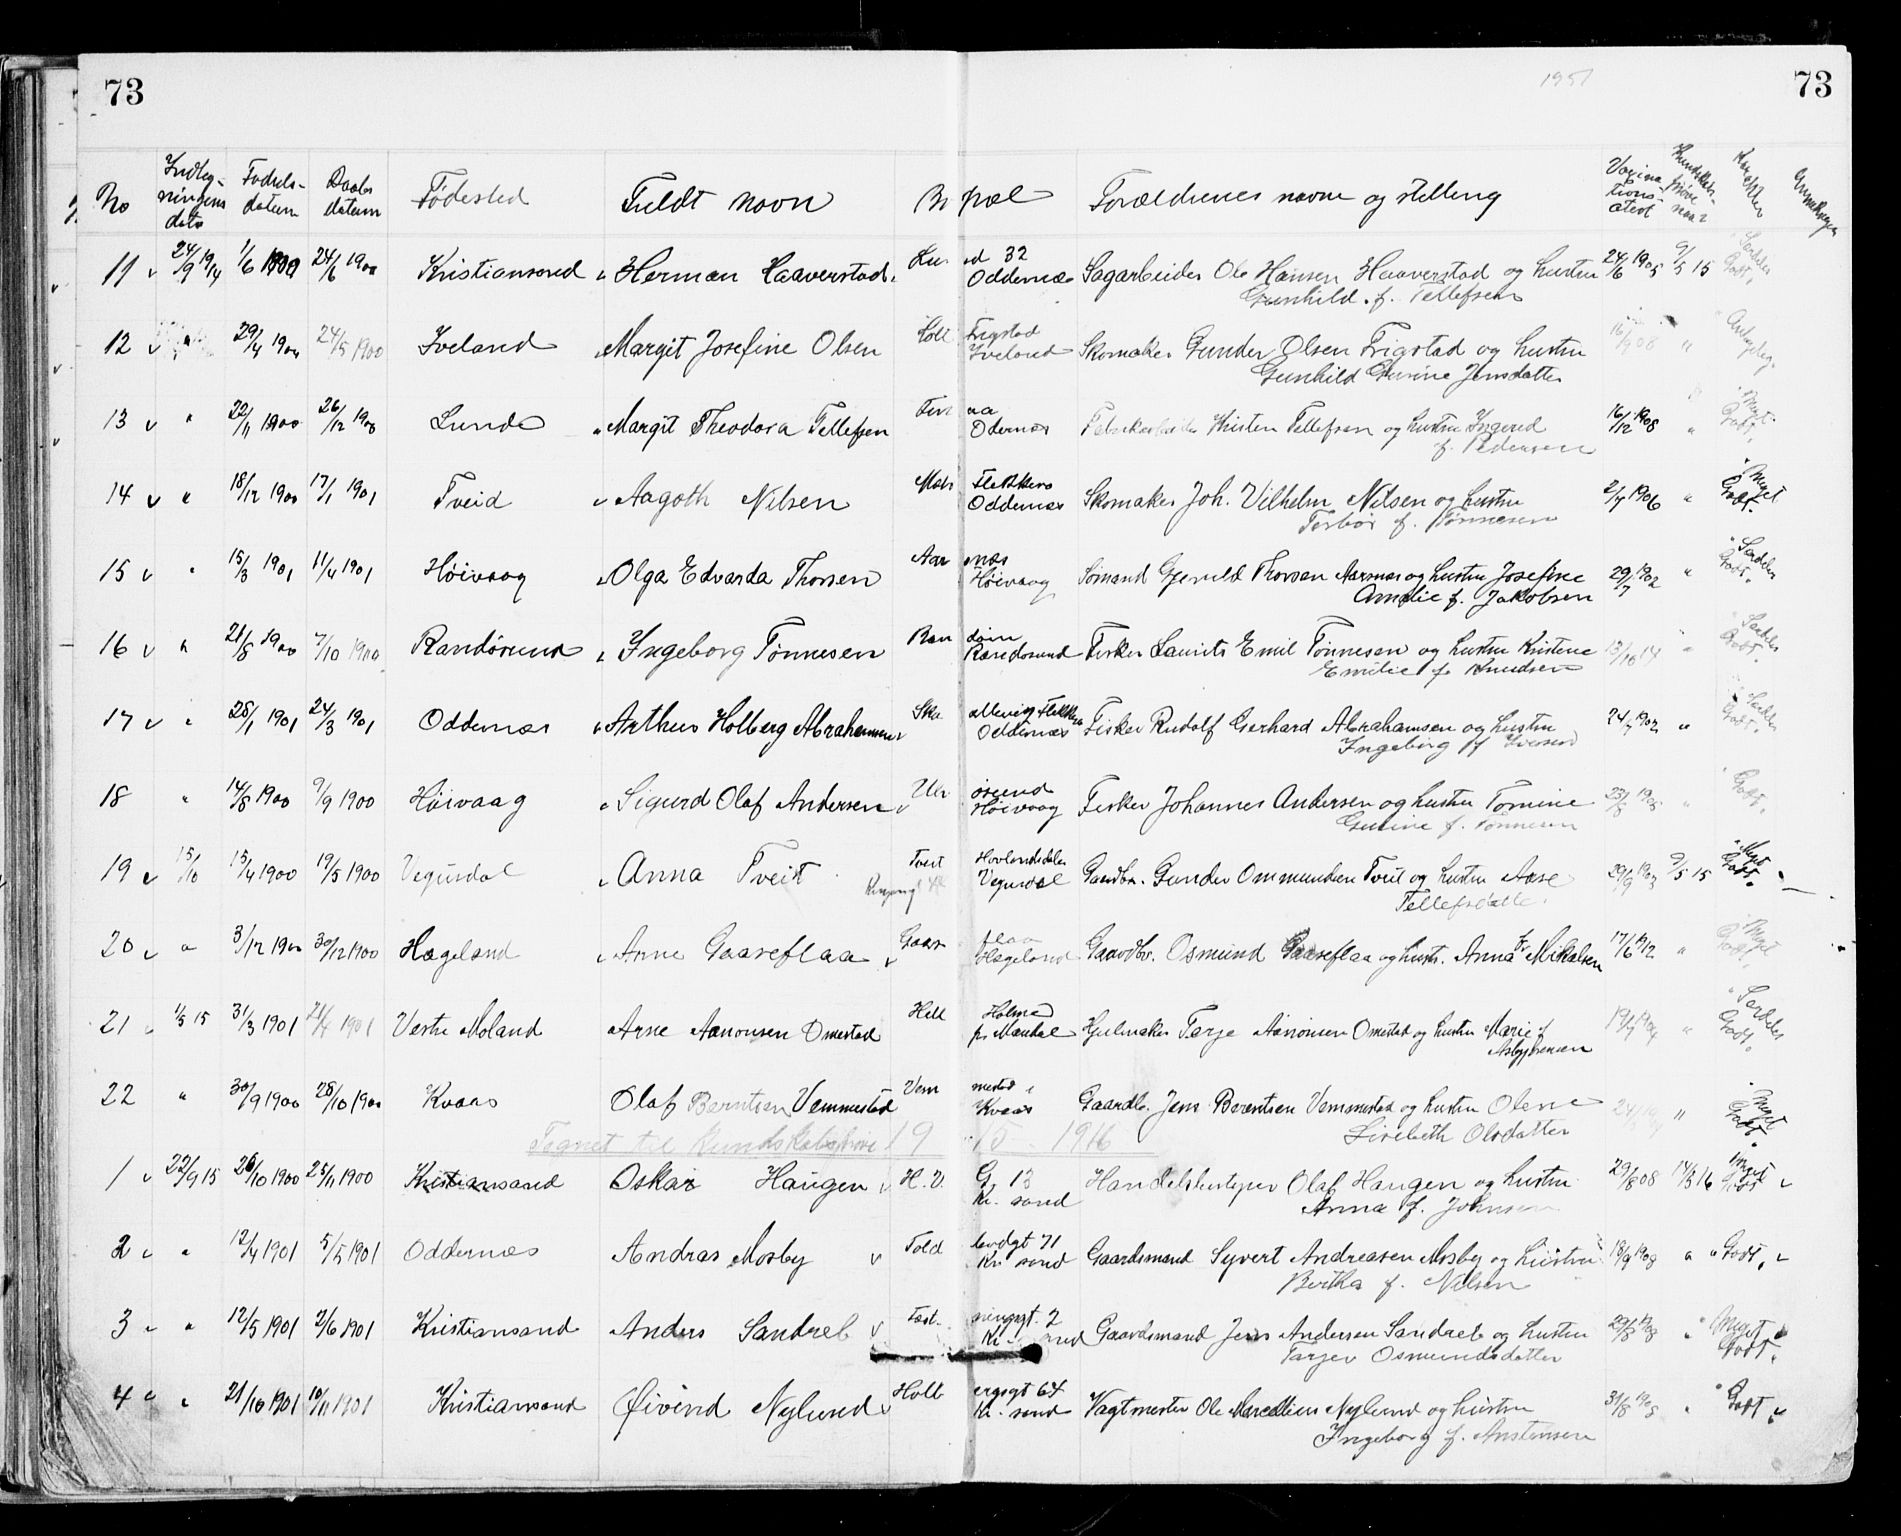 73 1951 73
No Indleg-ningens dato Fødsels-datum Daabs datum Fødested Fuldt navn Bopæl Forældrenes navne og stilling Vacina-tions-attest Karakter Anmerkninger
11 24/9 1914 1/6 1900 24/6 1900 Kristiansand Herman Haaverstad Lund 32 Sagarbeider Ole Hansen Haaverstad og hustru 24/6 1905 9/5 15 Særdeles
Oddernæs Gunhild f. Tellefsen Godt.
12 " 29/4 1900 24/5 1900 Iveland Margit Josefine Olsen Frigstad Skomaker Gunder Olsen Frigstad og hustru 16/9 08 " Antagelig.
Iveland Gunhild Gurine Jensdatter
13 " 22/11 1900 26/12 1900 Lunde Margit Theodora Tellefsen Kristen Tellefsen og hustru Ingerid 16/12 1908 " Meget
Odernæs f. Pedersen Godt.
14 " 18/12 1900 17/1 1901 Tveid Aagoth Nilsen Flekkerø Skomaker Joh. Vilhelm Nilsen og hustru 2/7 1906 " Meget
Oddernæs Torbor f. Tønnesen Godt.
15 " 15/3 1901 11/4 1901 Høivaag Olga Edvarda Thorsen Aarsnæs Sømand Gjeruld Thorsen Aarsnæs og hustru Josefine 29/7 1902 " Særdeles
Høivaag Amalie f. Jakobsen Godt.
16 " 21/8 1900 7/10 1900 Randøsund Ingeborg Tønnesen Randøen Fisker Laurits Emil Tønnesen og hustru Kristine 13/10 14 " Særdeles
Randøsund Emilie f. Knudsen Godt.
17 " 28/1 1901 24/3 1901 Oddernæs Arthur Holberg Abrahamsen Skallevig Flekkerø Fisker Rudolf Gerhard Abrahamsen og hustru 24/7 1902 " Særdeles
Oddernæs Ingeborg f. Iversen Godt.
18 " 14/8 1900 9/9 1900 Høivaag Sigurd Olaf Andersen Ulvøsund Fisker Johannes Andersen og hustru Tomine 23/8 1905 " Godt.
Høivaag Gurine f. Tønnesen
19 15/10 15/4 1900 19/5 1900 Vegusdal Anna Tveit Tveit Hovlandsdalen Gaardbr. Gunder Ommundsen Tveit og hustru Aase 29/9 1903 9/5 15 Meget
Vegusdal Tellefsdatter. Godt.
20 " 3/12 1900 30/12 1900 Hægeland Arne Gaaseflaa Gaaseflaa Gaardbr. Osmund Gaaseflaa og hustr. Anna f. Mikalsen 17/6 1912 " Meget
Hægeland Godt.
21 1/5 15 31/3 1901 21/4 1901 Vestre Moland Arne Aanonsen Omestad Holme Hjulmaker Terje Aanonsen Omestad og hustru Marie f. 19/7 1904 " Særdeles
pr Mandal Asbjørnsen Godt.
22 " 30/9 1900 28/10 1900 Kvaas Olaf Berntsen Vemmestad Vemmestad i Gaardb. Jens Berentsen Vemmestad og hustru Olene " Meget
Kvaas Lisebeth Olsdatter Godt.
Tegnet til kundskabsprøve 1915 - 1916
1 22/9 15 26/10 1900 25/11 1900 Kristiansand Oskar Haugen H. V. G. 13 Handelsbestyrer Olaf Haugen og hustru 29/8 08 14/3 16 Meget
Kr. sand Anna f. Johnsen Godt
2 " 12/4 1901 5/5 1901 Oddernæs Andras Mosby Toldbodgt 71 Gaardsmand Syvert Andreasen Mosby og hustru 18/9 1908 " Godt.
Kr sand Bertha f. Nilsen
3 " 12/5 1901 2/6 1901 Kristiansand Anders Sandreb Festningsgt. 2 Gaardsmand Jens Andersen Sandreb og hustru " Meget
Kr. sand Tarjer Osmundsdatter Godt.
4 " 21/10 1901 10/11 1901 Kristiansand Øivind Nylund Holbergsgt 64 Vagtmester Ole Marcellius Nylund og hustru 31/8 1905 " Godt
Kr. sand Ingeborg f. Anstensen